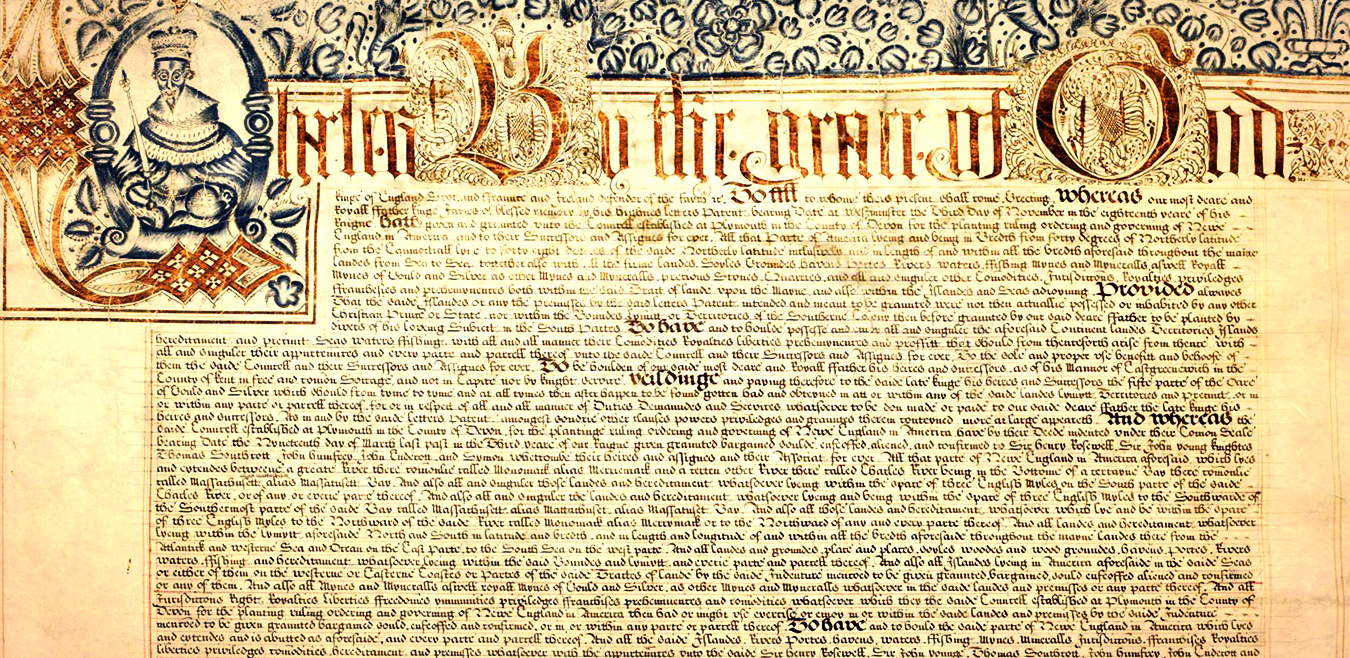 Charles By the grace of God
kinge of England Scotland Fraunce and Ireland defender of the fayth &c. To all to whome theis present shall come Greeting Whereas our most deare and
Royall ffather kinge James of blessed memory by his highnes letters Patent bearing Date at Westminster the Third Day of November in the eighteenth yeare of his
Raigne Hath given and graunted vnto the Councell established at Plymouth in the County of Devon for the planting ruling ordering and governing of Newe
England in America and to their Successors and Assignes for ever. All that Parte of America lyeing and being in Bredth from forty degrees of Northerly latitude
from the Equinoctiall lyne to forty eight Degrees of the saide Northerly latitude inclusively and in length of and within all the bredth aforesaide throughout the maine
landes from Sea to Sea together also with all the firme landes Soyles Groundes Havens Portes Rivers waters ffishing Mynes and Myneralls aswell Royall
Mynes of Gould and Silver as other Mynes and Myneralls precious Stones Quarries and all and singuler other Comodities Jurisdictions Royalties priviledges
ffranchesies and prehemynences both within the said Tract of lande vpon the Mayne and also within the Islandes and Seas adioyning Provided alwayes
That the saide Islandes or any the premisses by the said letters Patent intended and meant to be graunted were not then actuallie possessed or inhabited by any other
Christian Prince or State nor within the Boundes lymitt or Territories of the Southerne Colony then before graunted by our said deare ffather to be planted by
divers of his loveing Subiect in the South Partes To have and to houlde possesse and enioy all and singuler the aforesaid Continent landes Territories Islandes
hereditament and precinct Seas waters ffishing with all and all manner their Comodities Royalties liberties prehemynences and proffitt that should from thenceforth arise from thence with
all and singuler their appurtenances and every parte and parcell thereof vnto the saide Councell and their Successors and Assignes for ever To the sole and proper vse benefitt and behoofe of
them the saide Councell and their Successors and Assignes for ever To be houlden of our saide most deare and Royall ffather his heires and successors as of his Mannor of Eastgreenewich in the
County of Kent in free and comon Soccage and not in Capite nor by knight service yeildinge and paying therefore to the saide late kinge his heires and Successors the fifte parte of the Oare
of Gould and Silver which should from tyme to tyme and at all tymes then after happen to be found gotten had and obteyned in att or within any of the saide landes lymitt Territories and Precinct or in
or within any parte or parcell thereof for or in respect of all and all manner of Duties Demaundes and Services whatsoever to be don made or paide to our saide deare ffather the late kinge his
heires and successors As in and by the saide letters Patent amongst sundrie other clauses powers priviledges and grauntes therein conteyned more at large appeareth And whereas the
saide Councell established at Plymouth in the County of Devon for the plantinge ruling ordering and governing of Newe England in America have by their Deede indented vnder their Comon Seale
bearing Date the Nyneteenth day of March last past in the Third yeare of our Raigne given graunted bargained soulde enfeoffed aliened and confirmed to Sir henry Rosewell Sir John young knightes
Thomas Southcott John humfrey John Endecott and Symon whetcombe their heires and assignes and their Associat for ever All that parte of Newe England in America aforesaid which lyes
and extendes betweene a greate River there comonlie called Monomack alias Merriemack and a certen other River there called Charles River being in the Bottome of a certayne Bay there comonlie
called Massachusett alias Mattachusett alias Massatusett Bay And also all and singuler those landes and hereditament whatsoever lyeing within the space of three English Myles on the South parte of the saide
Charles River or of any or everie parte thereof And also all and singuler the landes and hereditament whatsoever lyeing and being within the space of three English Myles to the Southwarde of
the Southermost parte of the saide Bay called Massachusett alias Mattachusett alias Massatuset Bay And also all those landes and hereditament whatsoever which lye and be within the space
of three English Myles to the Northward of the saide River called Monomack alias Merrymack or to the Northward of any and every parte thereof And all landes and hereditament whatsoever
lyeing within the lymitt aforesaide North and South in latitude and bredth and in length and longitude of and within all the bredth aforesaide throughout the mayne landes there from the
Atlantick and westerne Sea and Ocean on the East Parte to the South Sea on the west parte And all landes and groundes place and places soyles woodes and wood groundes havens portes Rivers
waters ffishing and hereditament whatsoever lyeing within the said Boundes and lymitt and everie parte and parcell thereof And also all Islandes lyeing in America aforesaide in the saide Seas
or either of them on the westerne or Easterne Coastes or Partes of the saide Tractes of lande by the saide Indenture mencoed to be given graunted bargained sould enfeoffed aliened and confirmed
or any of them And also all Mynes and Myneralls aswell royall Mynes of Gould and Silver as other Mynes and Myneralls whatsoever in the saide landes and premisses or any parte thereof And all
Jurisdictions Right Royalties Liberties ffreedomes ymmunities priviledges ffranchises preheminences and comodities whatsoever which they the saide Councell established at Plymouth in the County of
Devon for the planting ruling ordering and governing of Newe England in America then had or might vse exercise or enioy in or within the saide landes and premisses by the saide Indenture
mencoed to be given graunted bargained sould enfeoffed and confirmed or in or within any parte or parcell thereof To have and to hould the saide parte of Newe England in America which lyes
and extendes and is abutted as aforesaide and every parte and parcell thereof And all the saide Islandes Rivers Portes havens waters ffishing Mynes Myneralls Jurisdictions ffranchises Royalties
liberties priviledges comodities hereditament and premisses whatsoever with the appurtenances vnto the saide Sir henry Rosewell Sir John younge Thomas Southcott John humfrey John Endecott and